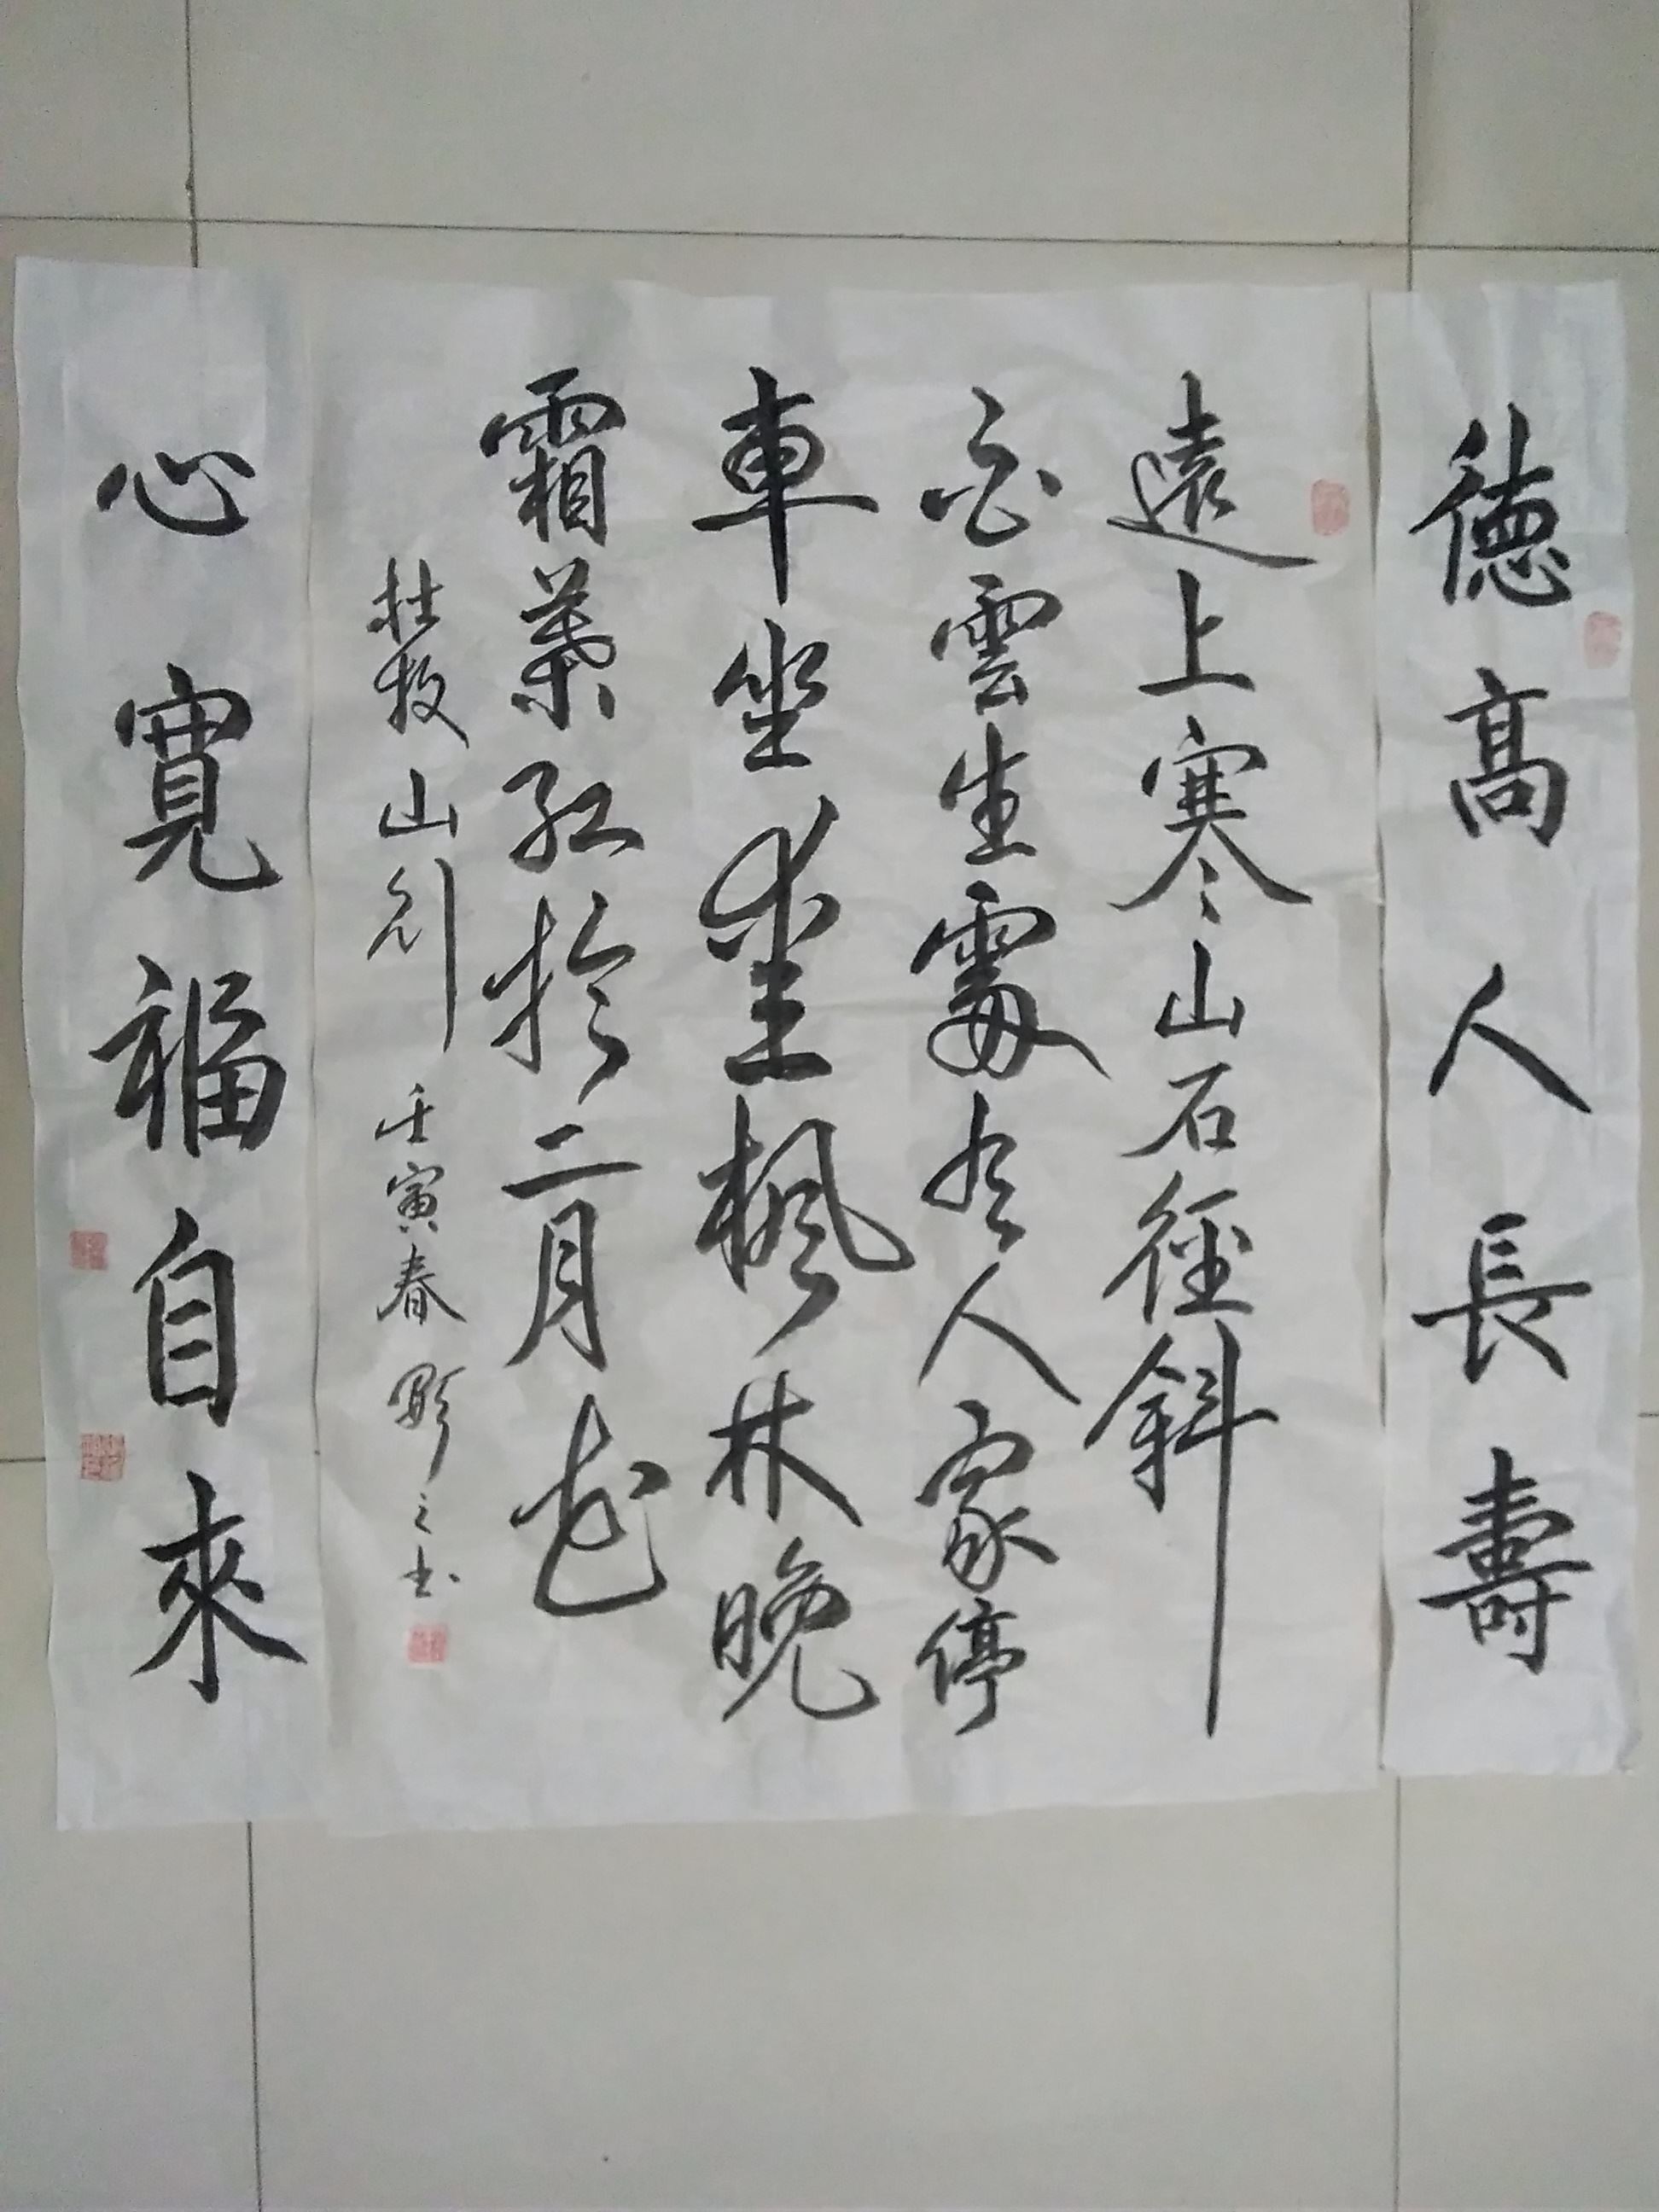 徳高人長壽
遠上寒山石徑斜
白雲生處有人家停
車坐愛楓林晚
霜葉紅於二月花
杜牧山行 壬寅春 之书
心寬福自來